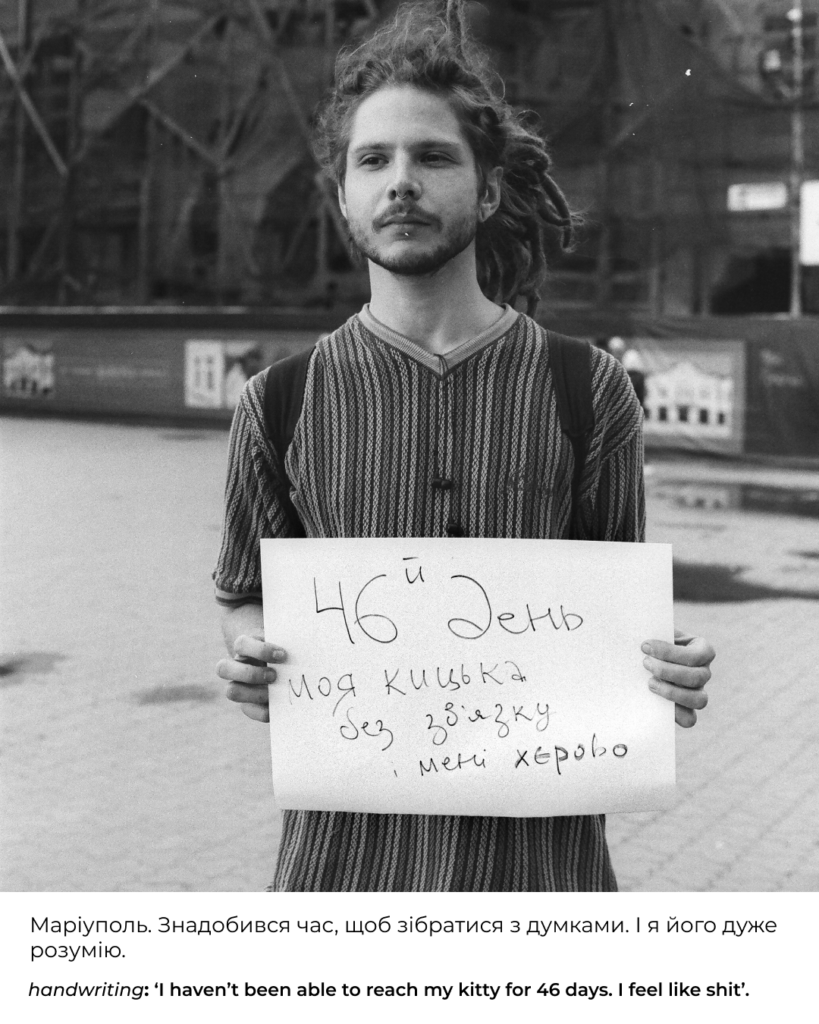 46й день
моя кицька
без зв'язку
і мені хєрово
Маріуполь. Знадобився час, щоб зібратися з думками. І я його дуже
розумію.
handwriting: ‘I haven’t been able to reach my kitty for 46 days. I feel like shit’.